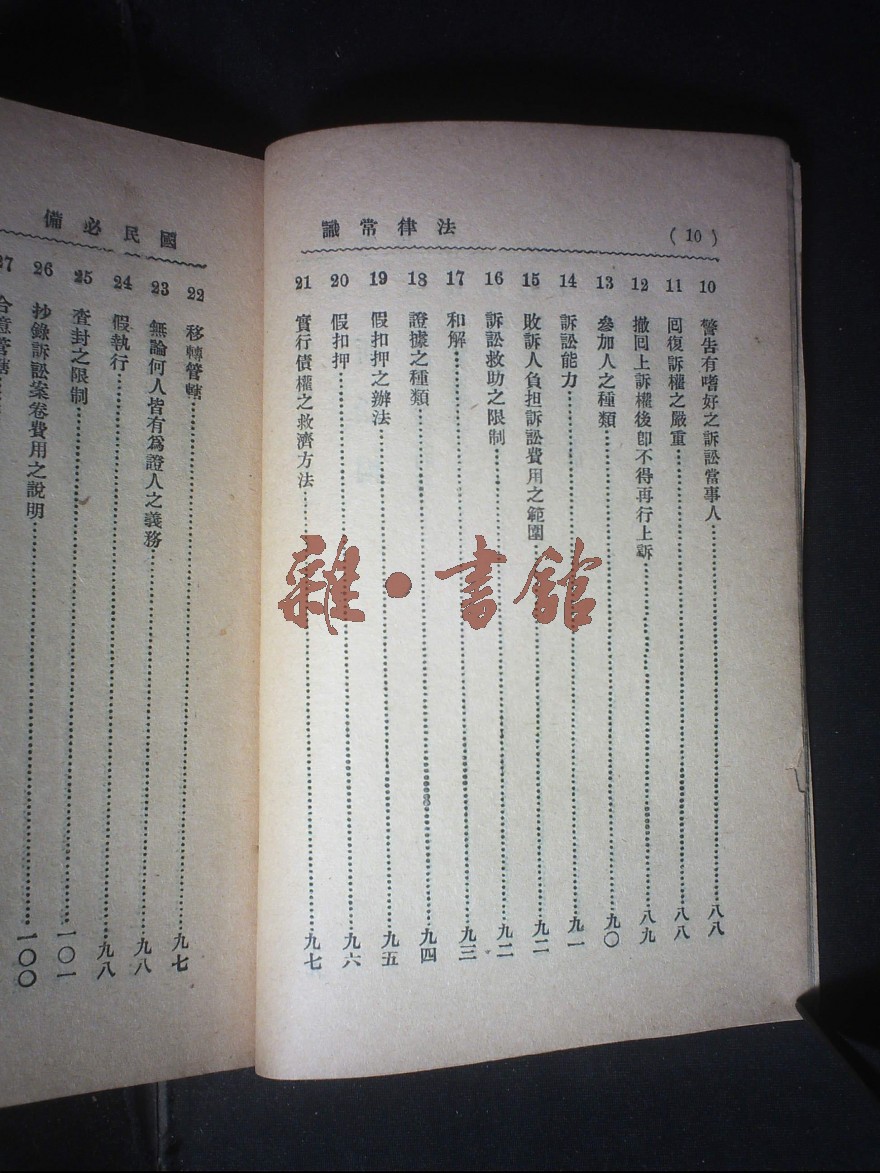 法律常識
(10)
10 警告有嗜好之訴訟當事人……八八
11 回復訴權之嚴重……八八
12 撤回上訴權後卽不得再行上訴……八九
13 參加人之種類……九〇
14 訴訟能力……九一
15 敗訴人負担訴訟費用之範圍……九二
16 訴訟救助之限制……九二
17 和解……九三
18 證據之種類……九四
19 假扣押之辦法……九五
20 假扣押……九六
21 實行債權之救濟方法……九七
國民必備
22 移轉管轄……九七
23 無論何人皆有爲證人之義務……九八
24 假執行……九八
25 查封之限制……一〇一
26 抄錄訴訟案卷費用之說明……一〇〇
27 合意管轄
雜·書館